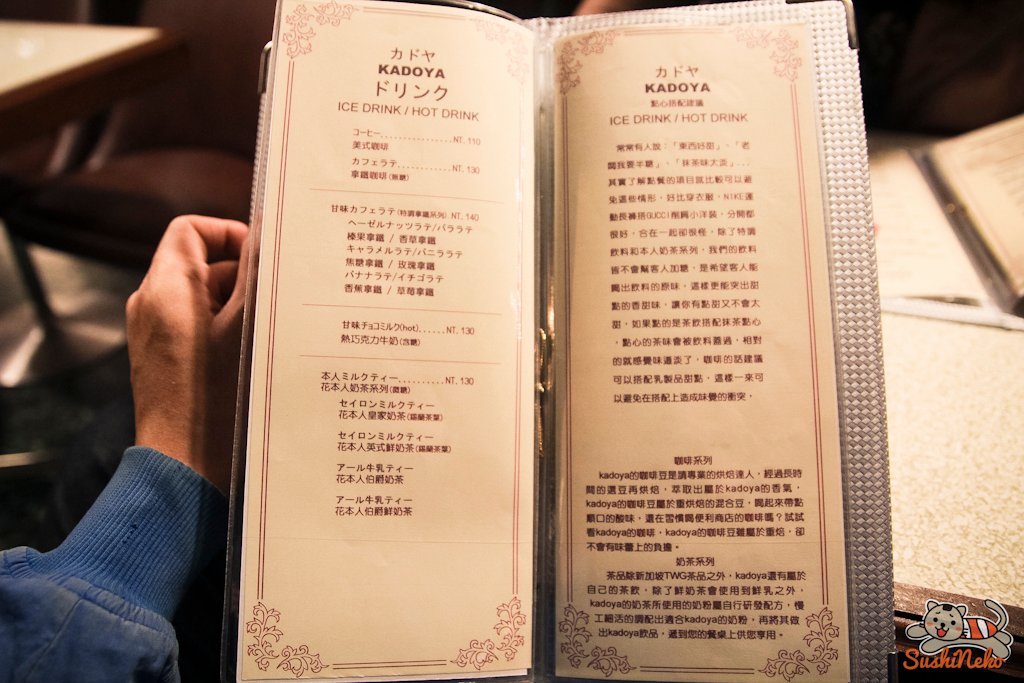 カドヤ
KADOYA
ドリンク
ICE DRINK / HOT DRINK
コーヒー................NT. 110
美式咖啡
カフェラテ............NT. 130
拿鐵咖啡(無糖)
甘味カフェラテ(特調拿鐵系列) NT. 140
ヘーゼルナッツラテ/バララテ
榛果拿鐵 / 香草拿鐵
キャラメルラテ/バニララテ
焦糖拿鐵 / 玫瑰拿鐵
バナナラテ/イチゴラテ
香蕉拿鐵 / 草莓拿鐵
甘味チョコミルク(hot)......NT. 130
熱巧克力牛奶(含糖)
本人ミルクティー..........NT. 130
花本人奶茶系列(微糖)
セイロンミルクティー
花本人皇家奶茶(錫蘭茶葉)
セイロンミルクティー
花本人英式鮮奶茶(錫蘭茶葉)
アール牛乳ティー
花本人伯爵奶茶
アール牛乳ティー
花本人伯爵鮮奶茶
カドヤ
KADOYA
點心搭配建議
ICE DRINK / HOT DRINK
常常有人說:「東西好甜」、「老
闆我要半糖」、「抹茶味太淡」...
其實了解點餐的項目就比較可以避
免這些情形，好比穿衣服，NIKE運
動長褲搭GUCCI削肩小洋裝，分開都
很好，合在一起卻很怪，除了特調
飲料和本人奶茶系列，我們的飲料
皆不會幫客人加糖，是希望客人能
喝出飲料的原味，這樣更能突出甜
點的香甜味，讓你有點甜又不會太
甜，如果點的是茶飲搭配抹茶點心
，點心的茶味會被飲料蓋過，相對
的就感覺味道淡了，咖啡的話建議
可以搭配乳製品甜點，這樣一來可
以避免在搭配上造成味覺的衝突，
咖啡系列
kadoya的咖啡豆是請專業的烘焙達人，經過長時
間的選豆再烘焙，萃取出屬於kadoya的香氣，
kadoya的咖啡豆屬於重烘焙的混合豆，喝起來帶點
順口的酸味，還在習慣喝便利商店的咖啡嗎？試試
看kadoya的咖啡，kadoya的咖啡豆雖屬於重焙，卻
不會有味蕾上的負擔。
奶茶系列
茶品除新加坡TWG茶品之外，kadoya還有屬於
自己的茶飲，除了鮮奶茶會使用到鮮乳之外，
kadoya的奶茶所使用的奶粉屬自行研發配方，慢
工細活的調配出適合kadoya的奶粉，再將其做
出kadoya飲品，遞到您的餐桌上供您享用。
SushiNeko